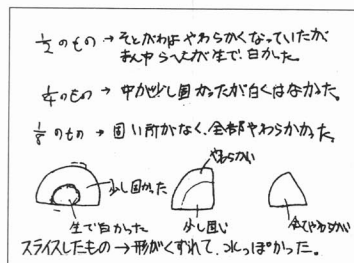 1/2のもの → そとがわはやわらかくなっていたが
まんならへんが生で、白かった。
1/4のもの → 中が少し固かったが白くはなかった。
1/8のもの → 固い所がなく、全部やわらかかった。
やわらかい
少し固かった
生で白かった
少し固い
全てやわらかい
スライスしたもの → 形がくずれて、水っぽかった。